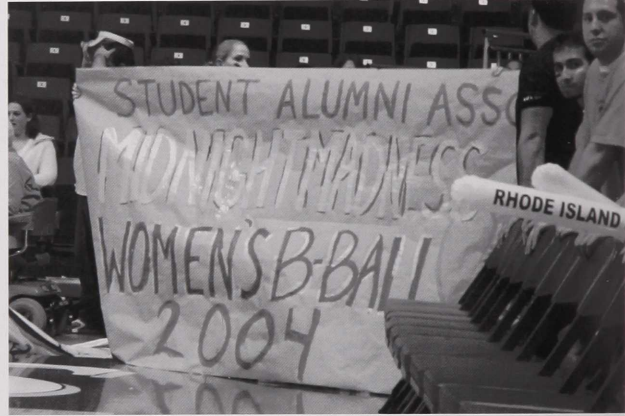 STUDENT ALUMNI ASSO
MIDNIGHT MADNESS
WOMEN'S B-BALL
2004
RHODE ISLAND